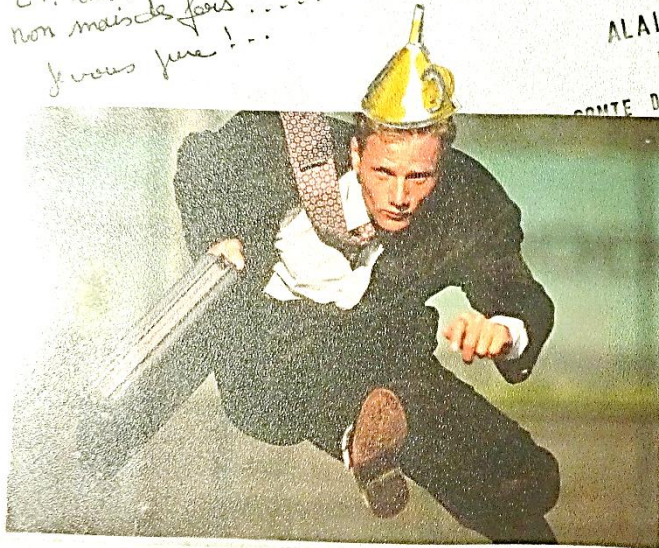 non mais des fois.....
Je vous jure !..
ALAI
COMTE D